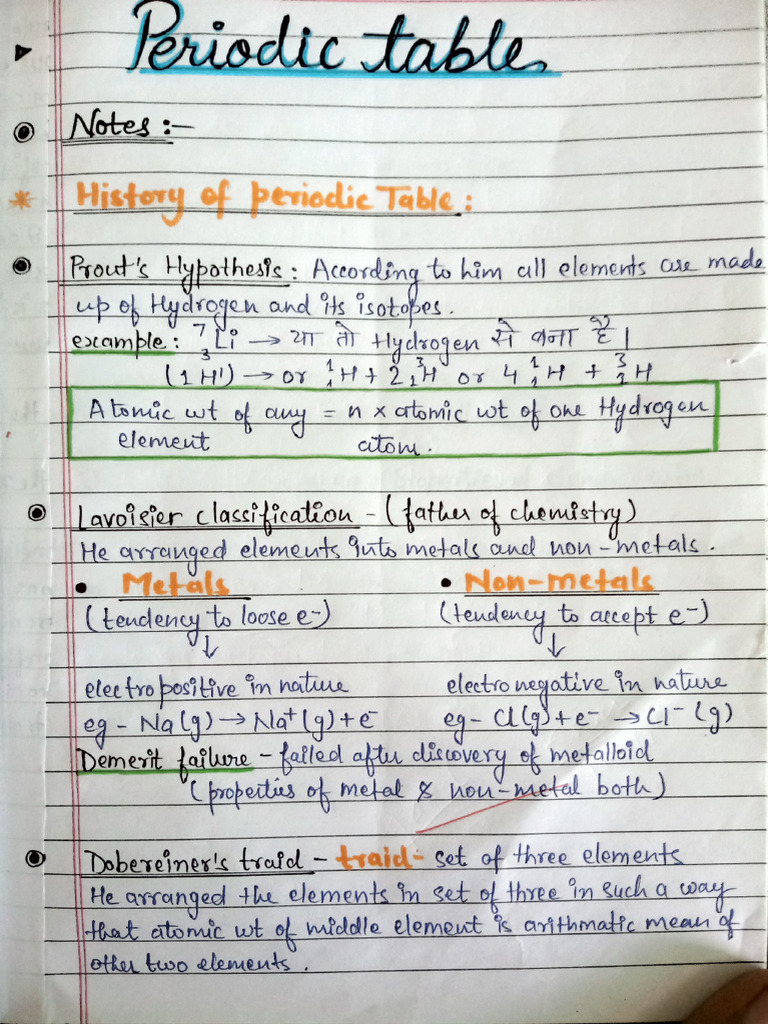 Periodic table
Notes :-
* History of periodic Table :
Prout's Hypothesis : According to him all elements are made
up of Hydrogen and its isotopes.
example : ⁷₃Li → या तो Hydrogen से बना है ।
(1H¹) → or ¹₁H + 2 ³₁H or 4 ¹₁H + ³₂H
Atomic wt of any = n × atomic wt of one Hydrogen
element atom.
Lavoisier classification - (father of chemistry)
He arranged elements into metals and non-metals.
• Metals • Non-metals
(tendency to loose e-) (tendency to accept e-)
↓ ↓
electropositive in nature electronegative in nature
eg - Na(g) → Na⁺(g) + e⁻ eg - Cl(g) + e⁻ → Cl⁻ (g)
Demerit failure - failed after discovery of metalloid
(properties of metal & non-metal both)
Dobereiner's traid - traid - set of three elements
He arranged the elements in set of three in such a way
that atomic wt of middle element is arithmatic mean of
other two elements.